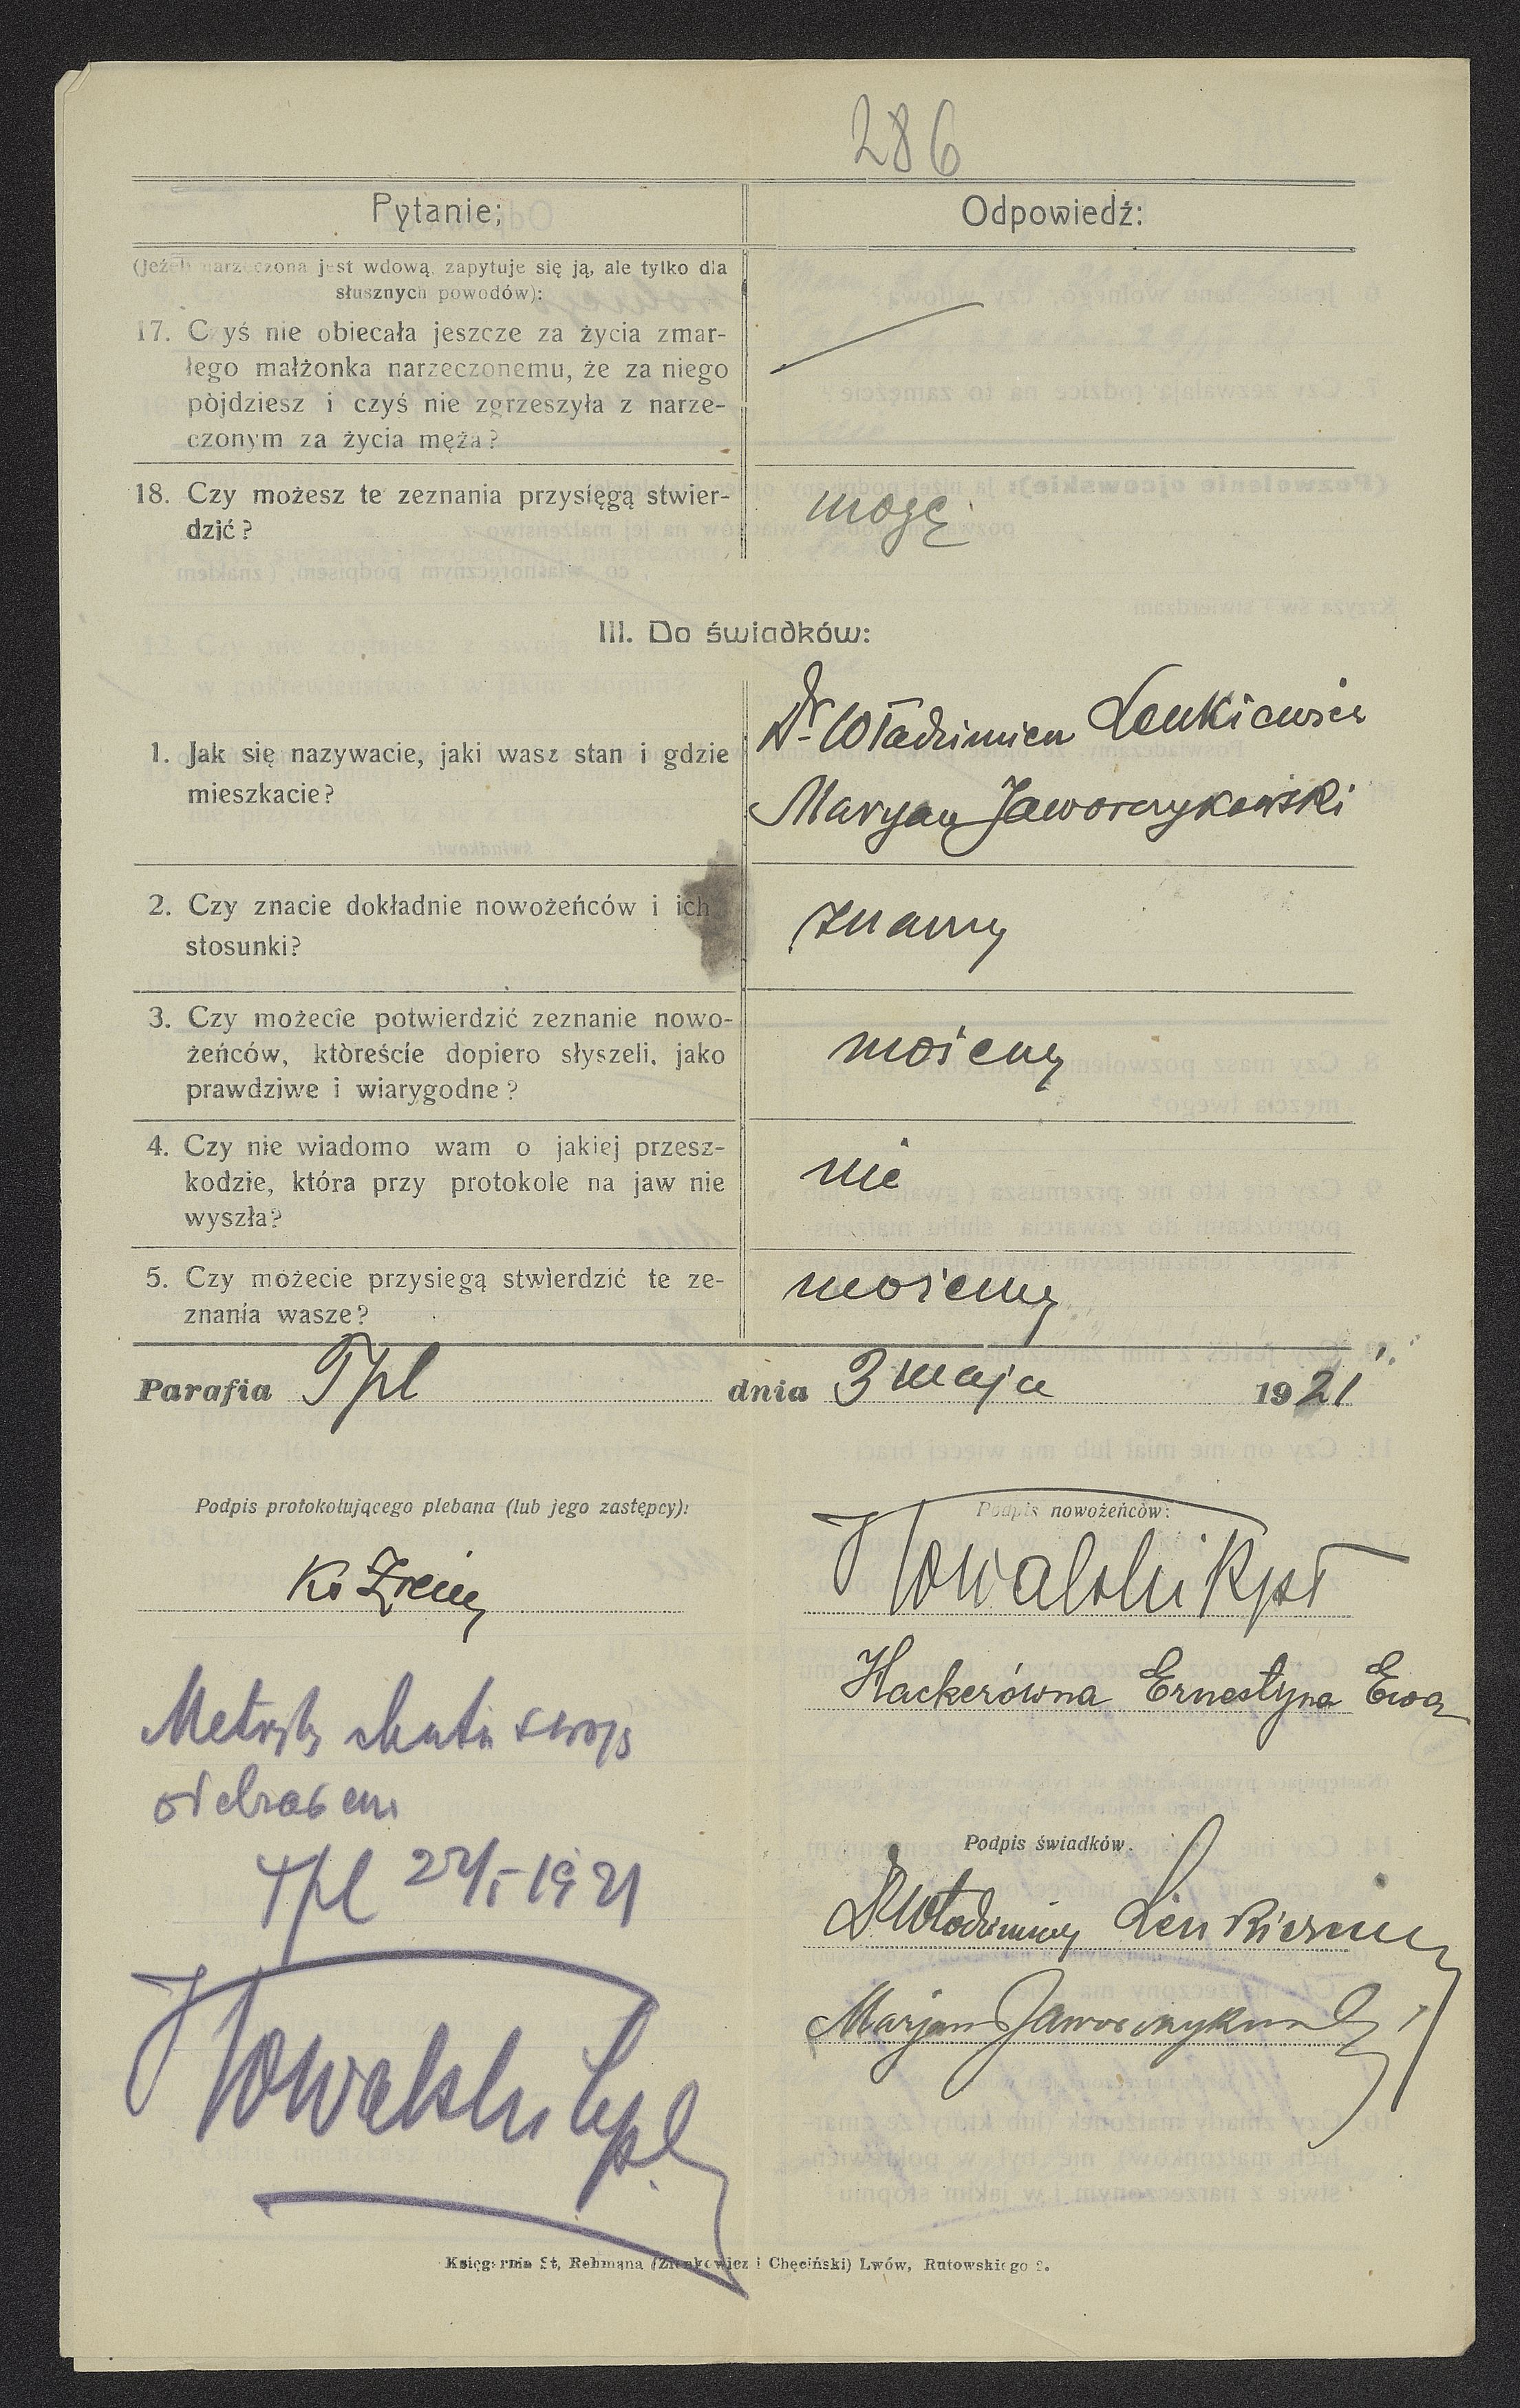 286
Pytanie; Odpowiedź:
(Jeżeli narzeczona jest wdową, zapytuje się ją, ale tylko dla
słusznych powodów):
17. Czyś nie obiecała jeszcze za życia zmar-
łego małżonka narzeczonemu, że za niego
pòjdziesz i czyś nie zgrzeszyła z narze-
czonym za życia męża?
18. Czy możesz te zeznania przysięgą stwier-
dzić? mogę
III. Do świadków:
1. Jak się nazywacie, jaki wasz stan i gdzie
mieszkacie?
Dr Włodzimierz Lenkiewicz
Maryan Jaworczykowski
2. Czy znacie dokładnie nowożeńców i ich
stosunki?
znamy
3. Czy możecie potwierdzić zeznanie nowo-
żeńców, ktòreście dopiero słyszeli, jako
prawdziwe i wiarygodne?
możemy
4. Czy nie wiadomo wam o jakiej przesz-
kodzie, która przy protokole na jaw nie
wyszła?
nie
5. Czy możecie przysiegą stwierdzić te ze-
znania wasze?
możemy
Parafia Tpl dnia 3 maja 1921
Podpis protokołującego plebana (lub jego zastępcy): Podpis nowożeńców:
Ks
Kowalski Kpt
Hackerówna Ernestyna Ewa
Metrykę chrztu swoją
odebrałem
Tpl 1921
Kowalski
Podpis świadków.
Dr Włodzimierz Lenkiewicz
Marjan Jaworczykowski
Księgarnia St, Rehmana (Zienkowicz i Chęciński) Lwów, Rutowskiego 9.